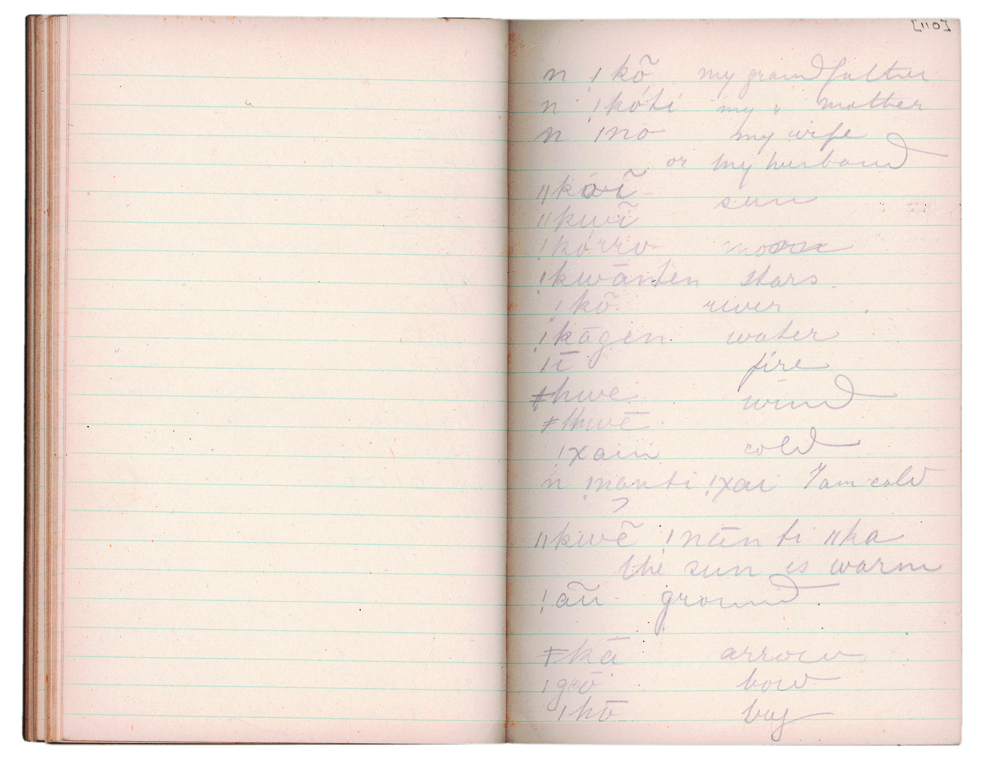 [110]
n ǀkõ my grandfather
n ǃkóti my " mother
n ǀno my wife
or my husband
ǁkõĩ sun
ǁkwĩ
ǃkórro moon
ǃkwānten stars
ǃkõ river
ǃkāgen water
ǀī fire
ǂhwe wind
ǂhwē
ǃxain cold
n ǃnanti ǃxai I am cold
?
ǁkwẽ ǀnānti ǁka
the sun is warm
ǃãũ ground
ǂkā arrow
ǀgõ bow
ǀhō bag